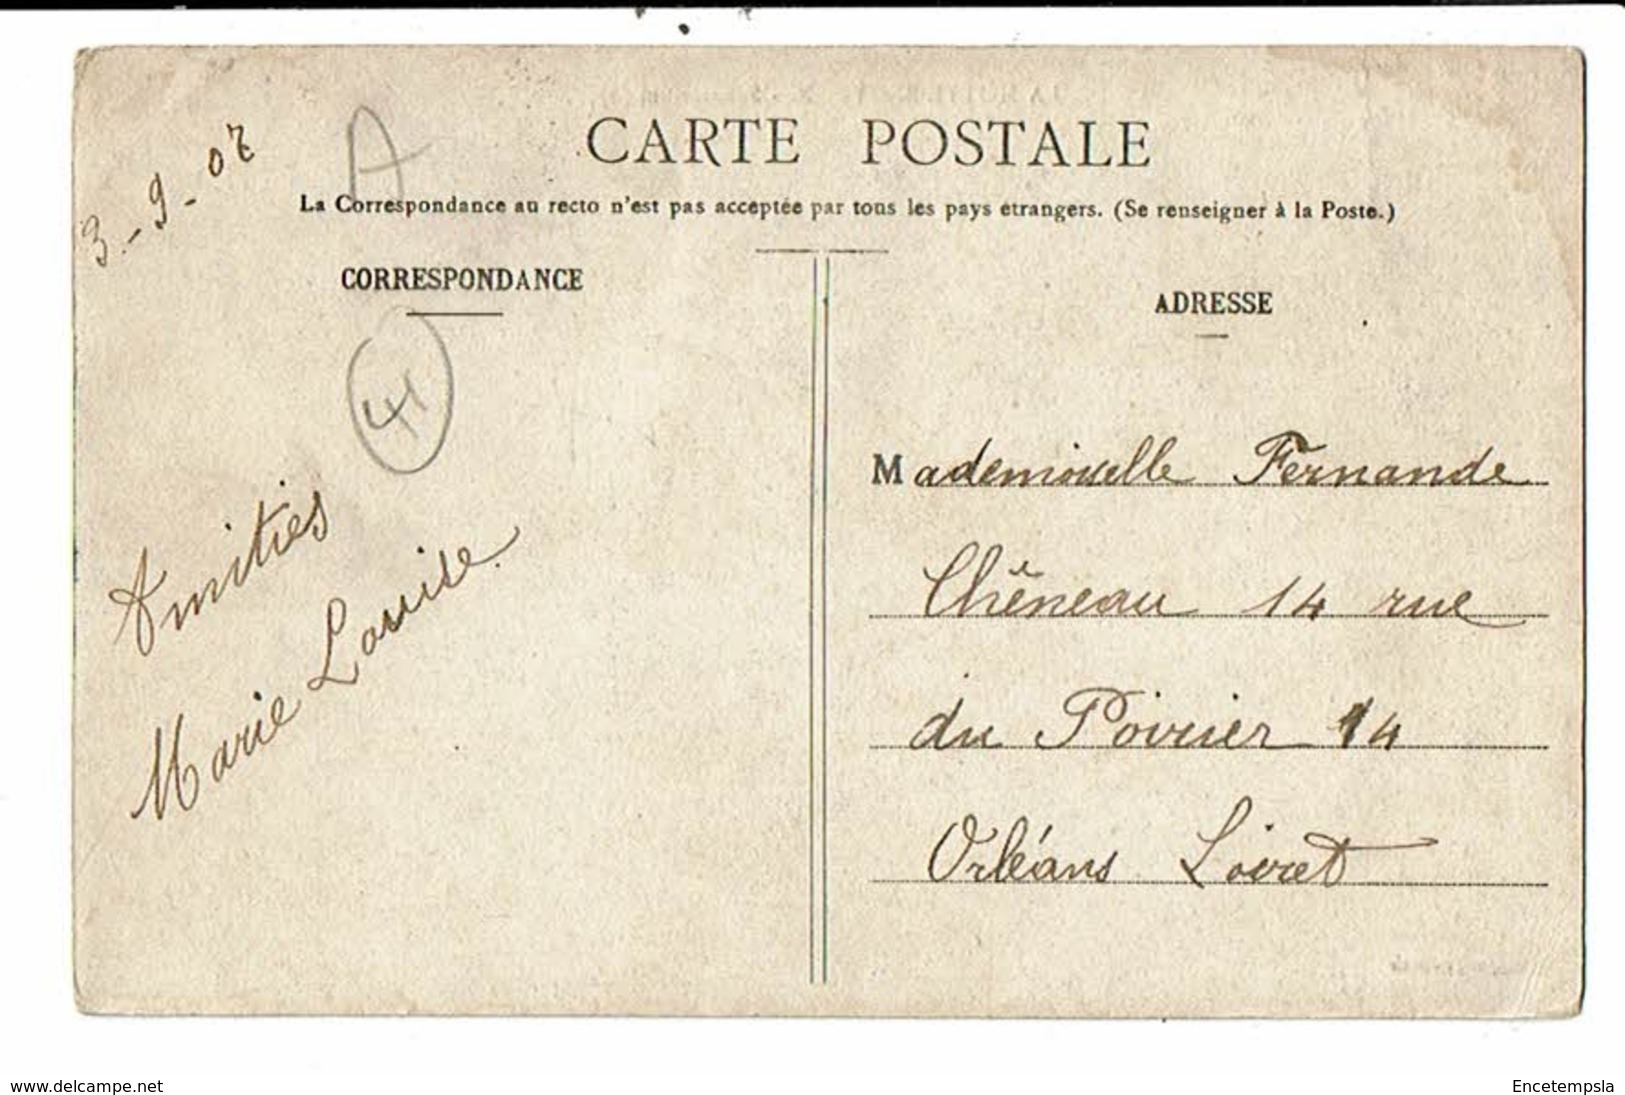 3-9-07
A
CARTE POSTALE
La Correspondance au recto n'est pas acceptée par tous les pays étrangers. (Se renseigner à la Poste.)
CORRESPONDANCE
41
Amitiés
Marie Louise.
ADRESSE
Mademoiselle Fernande
Chêneau 14 rue
du Poirier 14
Orléans Loiret
www.delcampe.net
Encetempsla